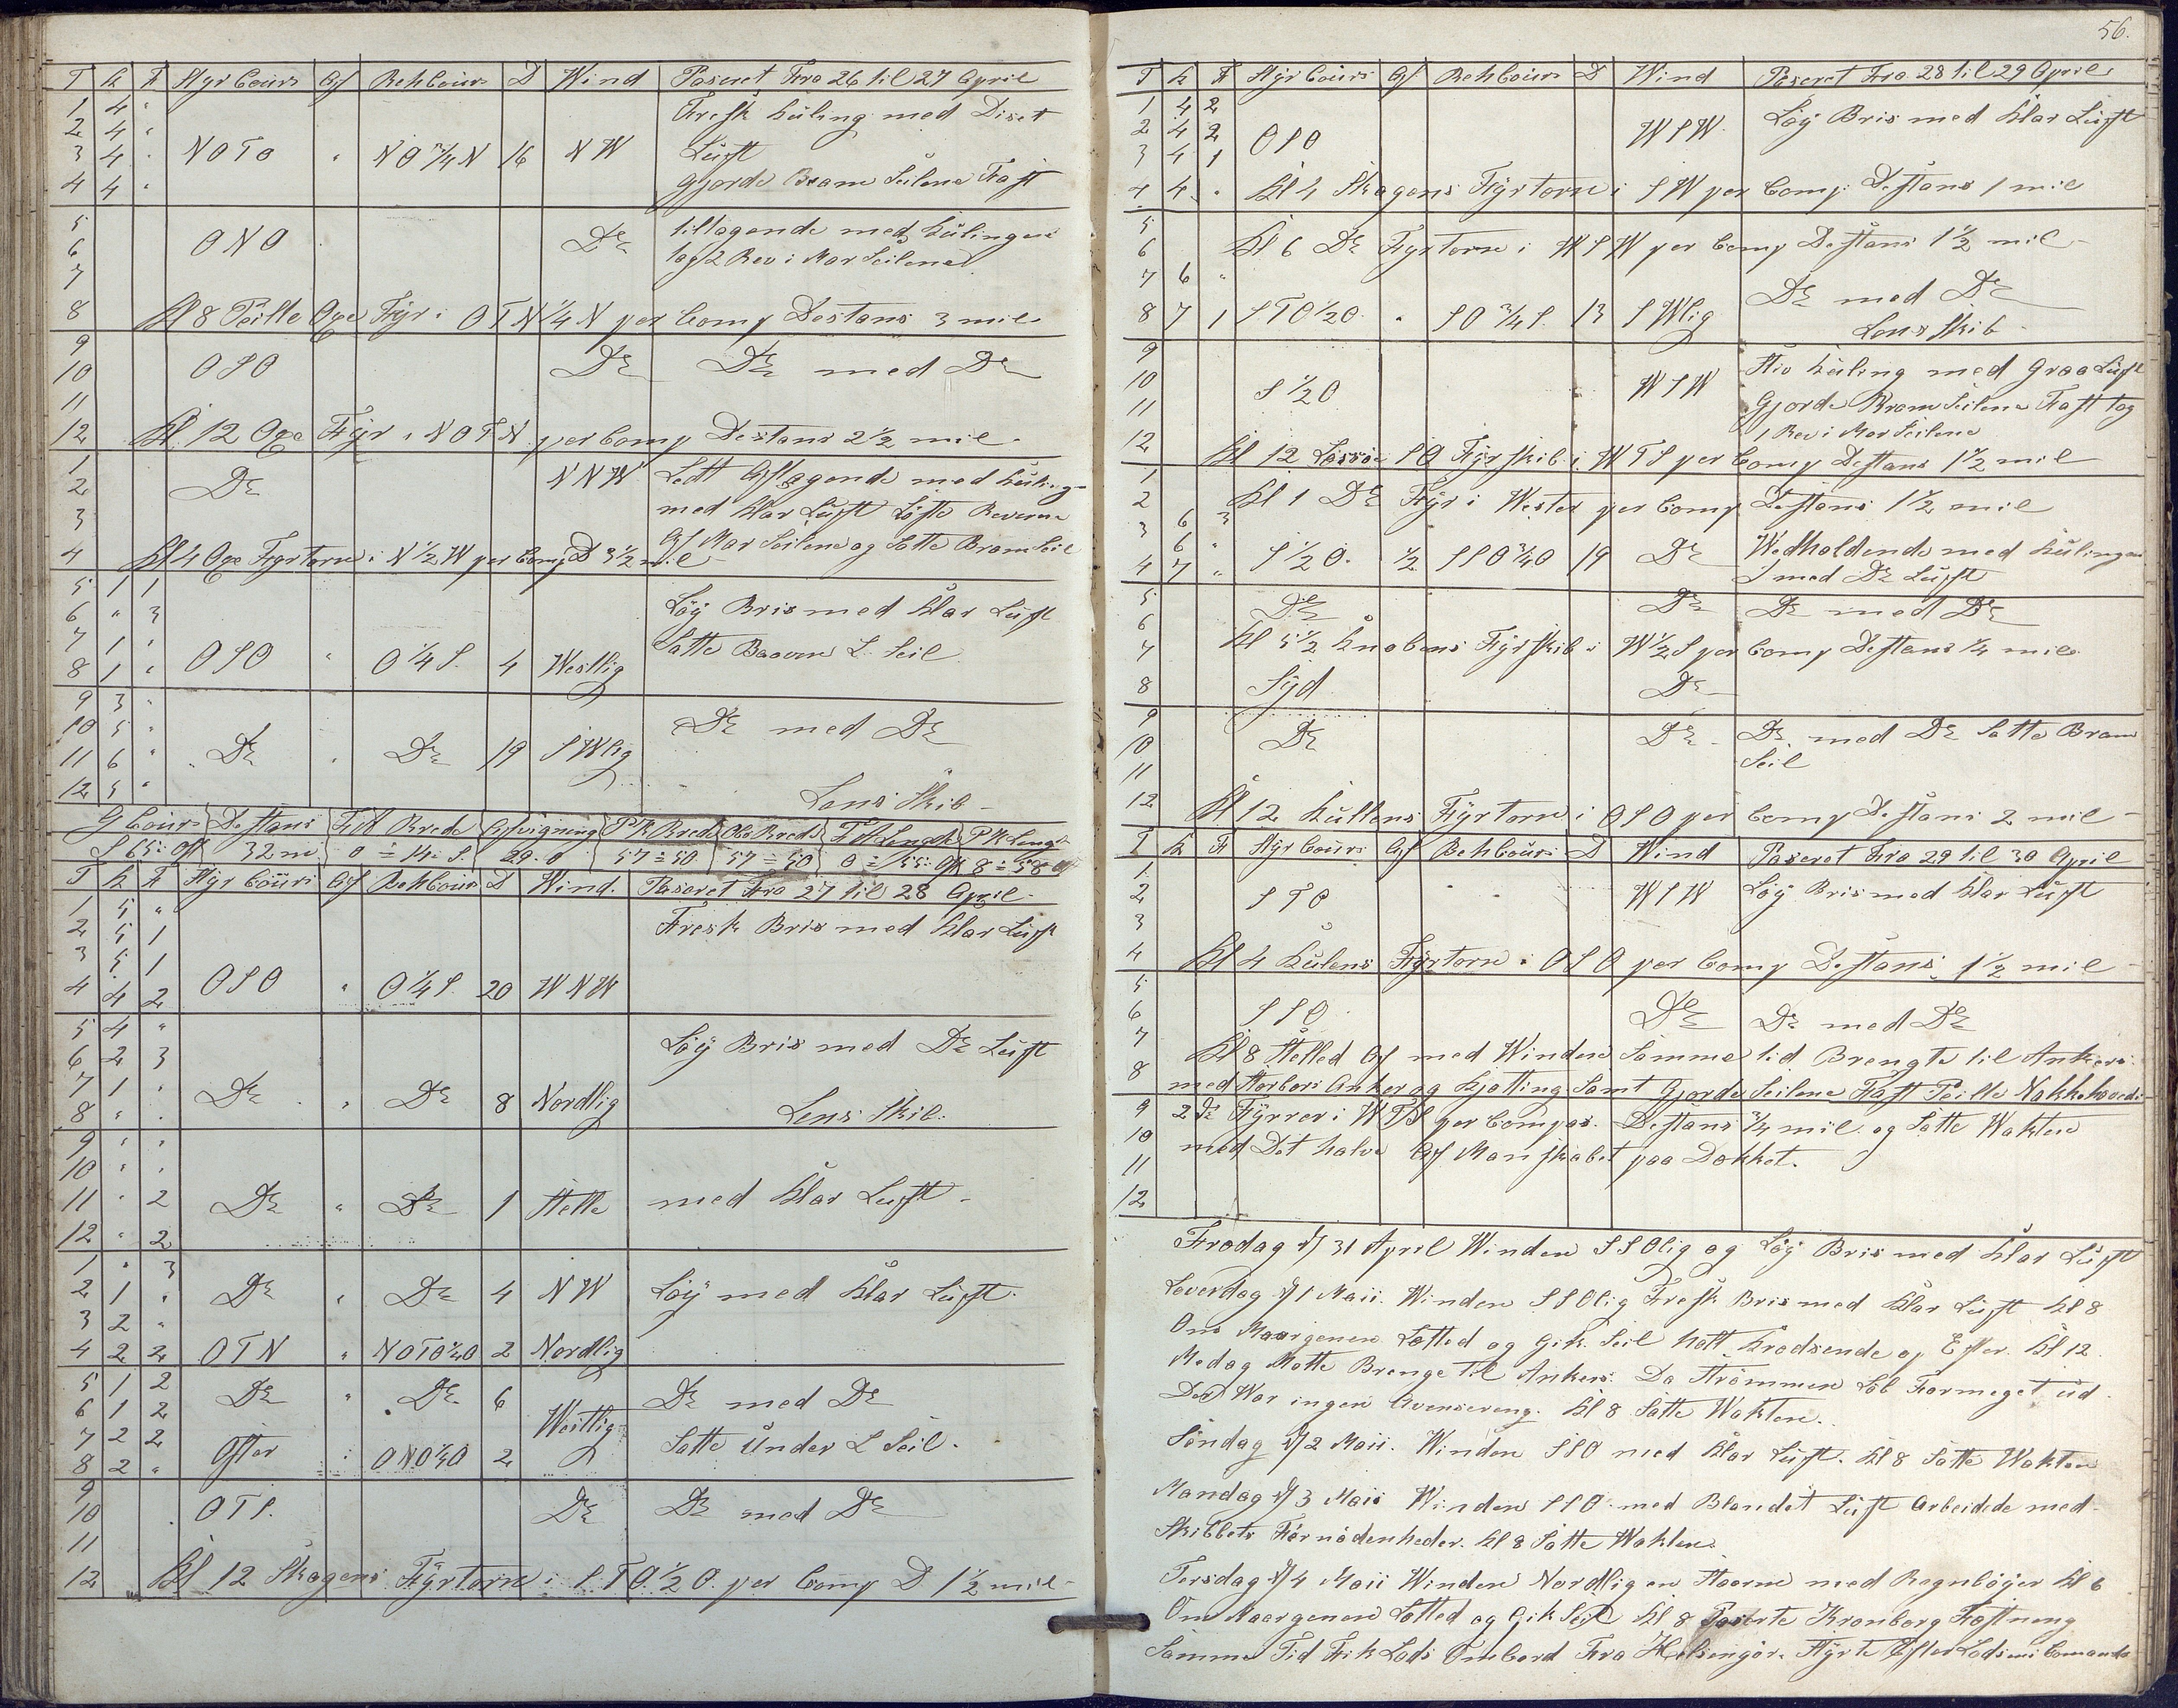 T K F Styr Cours Af Beh Cours D Wind Paseret Fra 26 til 27 April
1 4 " Fresk Kuling med Diset
2 4 "
3 4 " NOTO " NO 3/4 N 16 NW Luft
4 4 " Gjorde Bram Seilene Fast
5 tiltagende med Kulingen
6 ONO Do
7 tog 2 Rev i Mar Seilene
8 Kl 8 Peilte Oxø Fyr i OTN 1/4 N per Comp Destans 3 mil
9
10 OSO Do Do med Do
11
12 Kl. 12 Oxø Fyr i NOTN per Comp Destans 2 1/2 mil
1 NNW Lett Aftagende med Kuling
2 Do
3 med Klar Luft Löste Reverne
4 Kl 4 Oxø Fyrtorn i N 1/2 W per Comp D 3 1/2 mil Af Mar Seilene og Satte Bram Seil
5 1 1
6 " 3 Löÿ Bris med Klar Luft
7 1 "
8 1 " OSO " O 1/4 S. 4 Westlig Satte Baoven L. Seil
9 3 "
10 5 " Do med Do
11 6 " Do " Do 19 SWlig
12 5 " Lens Skib
G Cours Destans F A Brede Afvigning P K Brede Obs Brede F A Lengde P K Lengde
S 65: Ost 32 m 0 ÷ 14: S. 29. 0 57 ÷ 50 57 ÷ 50 0 ÷ 55: Ost 8 ÷ 58
T K F Styr Cours Af Beh Cours D Wind. Paseret Fra 27 til 28 April
1 5 "
2 5 1 Fresk Bris med Klar Luft
3 5 1
4 4 2 OSO " O 1/4 S. 20 WNW
5 4 "
6 2 3 Löÿ Bris med Do Luft
7 1 " Do " Do 8 Nordlig
8 " " Lens Skib.
9 " "
10 " "
11 " 2 Do " Do 1 Stelle med Klar Luft
12 " 2
1 " 3
2 1 " Do " Do 4 NW Löÿ med Klar Luft.
3 2 "
4 2 2 OTN " NOTO 1/4 O 2 Nordlig
5 1 2 Do " Do 6 Do med Do
6 1 2 Westlig
7 2 2 Satte Under L Seil.
8 2 " Öster ONO 1/4 O 2
9
10 OTS. Do Do med Do
11
12 Kl 12 Skagens Fyrtorn i STO 1/2 O. per Comp D 1 1/2 mil
56.
T K F Styr Cours Af Beh Cours D Wind Paseret Fra 28 til 29 April
1 4 2 Löÿ Bris med Klar Luft
2 4 2 WSW.
3 4 1 OSO
4 4 " Kl 4 Skagens Fyrtorn i SW per Comp Destans 1 mil
5
6 Kl 6 Do Fyrtorn i WSW per Comp Destans 1 1/2 mil
7 6 " Do med Do
8 7 1 STO 1/2 O " SO 3/4 S. 13 SWlig Lens Skib
9 Stiv Kuling med Graa Luft
10 S 1/2 O WSW
11 Gjorde Bram Seilene Fast tog
12 1 Rev i Mar Seilene
Kl 12 Lessöe SO Fyrskib i WTS per Comp Destans 1 1/2 mil
1
2 Kl 1 Do Fyr i Wester per Comp Destans 1 1/2 mil
3 6 3
4 7 " S 1/2 O. 1/2 SSO 3/4 O 19 Do Wedholdende med Kulingen
med Do Luft
5 Do Do Do med Do
6
7 Kl 5 1/2 Knobens Fyrskib i W 1/2 S per Comp Destans 1/4 mil
8 Syd Do
9
10 Do Do Do med Do Satte Bram
11 Seil
12 Kl 12 Kullens Fyrtorn i OSO per Comp Destans 2 mil
T K F Styr Cours Af Beh Cours D Wind Paseret Fra 29 til 30 April
1
2 STO WSW Löÿ Bris med Klar Luft
3
4 Kl 4 Kulens Fyrtorn i OSO per Comp Destans 1 1/2 mil
5
6 SSO Do Do med Do
7
8 Kl 8 Stilled Af med Winden Samme tid Brengte til Ankers
med Storbors Anker og Kjetting Samt Gjorde Seilene Fast Peilte Nakkehoveds
9 2 Do Fyrrer i WTS per Compas. Destans 3/4 mil og Satte Wakten
10 med Det halve Af Manskabet paa Dækket.
11
12
Fredag d/ 31 April Winden SSOlig og Löÿ Bris med Klar Luft
Löverdag d/ 1 Maii. Winden SSOlig Fresk Bris med Klar Luft Kl 8
Om Maargenen Lætted og Gik Seil hott Krodsende op Efter. Kl 12
Medag Motte Brenge til Ankers. Da Strömmen Löb Formeget ud
Der War ingen Avensereng. Kl 8 Satte Wakten.
Söndag d/ 2 Maii. Winden SSO med Klar Luft. Kl 8 Satte Wakten
Mandag d/ 3 Maii Winden SSO med Blandet Luft Arbeidede med
Skibbets Förnödenheder. Kl 8 Satte Wakten
Tersdag d/ 4 Maii Winden Nordlig en Storm med Regnböÿer Kl 6
Om Maargenen Lætted og Gik Seil Kl 8 Paserte Kronborg Fæstneng
Samme Tid Fik Lods Ombord Fra Helsingör. Styrte Efter Lodsens Comando